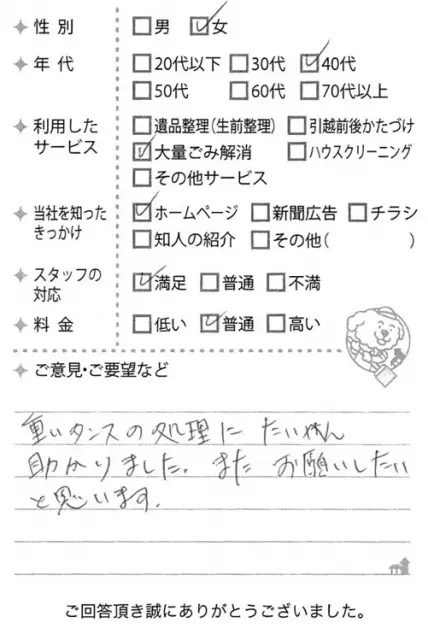 性別 □男 ☑女
年代 □20代以下 □30代 ☑40代
□50代 □60代 □70代以上
利用した □遺品整理(生前整理) □引越前後かたづけ
サービス ☑大量ごみ解消 □ハウスクリーニング
□その他サービス
当社を知った ☑ホームページ □新聞広告 □チラシ
きっかけ □知人の紹介 □その他( )
スタッフの
対応 ☑満足 □普通 □不満
料金 □低い ☑普通 □高い
ご意見・ご要望など
重いタンスの処理に たいへん
助かりました。また お願いしたい
と思います.
ご回答頂き誠にありがとうございました。